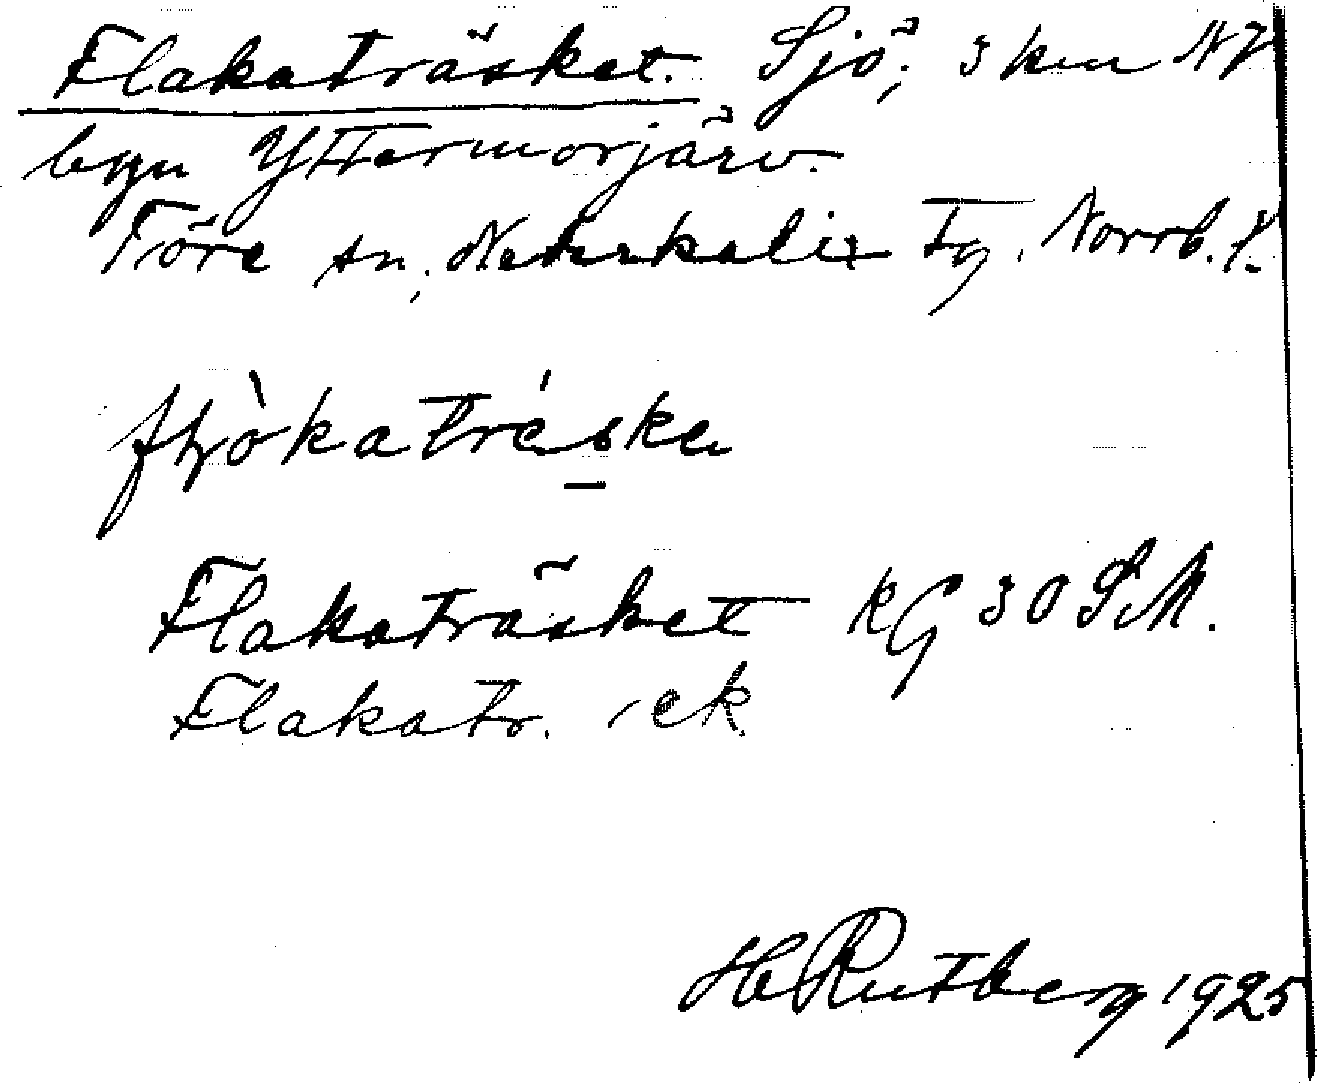 Flakaträsket. Sjö; 3 km NV
byn Yttermorjärv.
Töre sn, Nederkalix Tg. Norrb. l.
Flakaträsket KG 30 S.M.
Flakatr. ek
H Rutberg 1925